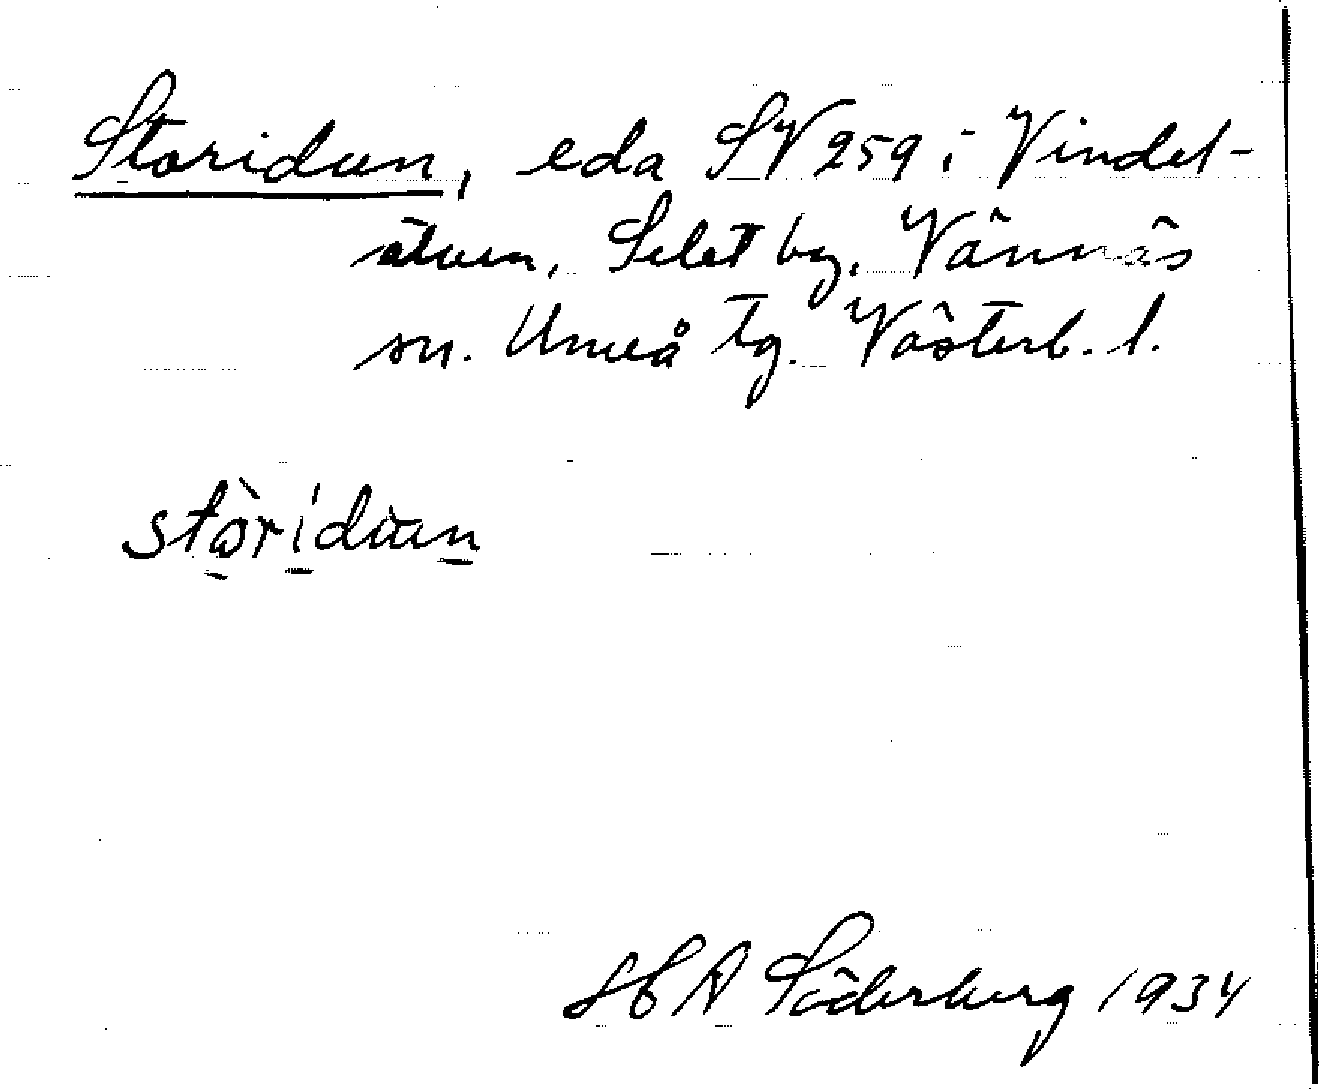 Storidun, eda SV 259 i Vindel-
älven, Selet by, Vännäs
sn. Umeå tg. Västerb. l.
stòridun
H A Söderberg 1934